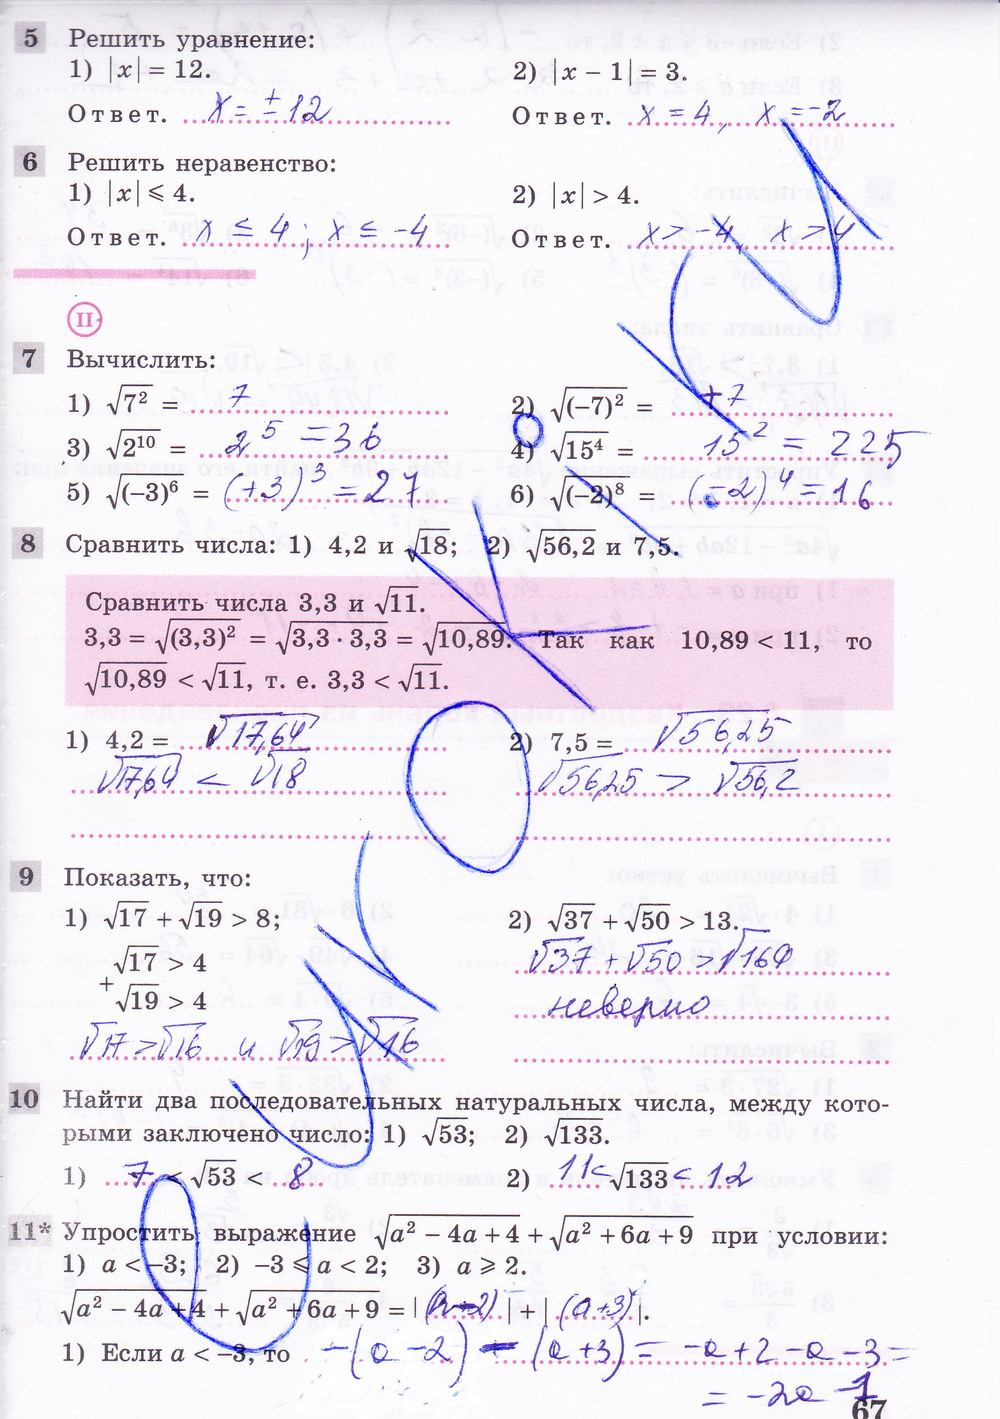 5 Решить уравнение:
1) |x| = 12. 2) |x − 1| = 3.
Ответ. x = ± 12 Ответ. x = 4, x = −2
6 Решить неравенство:
1) |x| ⩽ 4. 2) |x| > 4.
Ответ. x ≤ 4 ; x ≤ −4 Ответ. x > −4, x > 4
II
7 Вычислить:
1) √7² = 7 2) √(−7)² = +7
3) √2¹⁰ = 2⁵ = 36 4) √15⁴ = 15² = 225
5) √(−3)⁶ = (+3)³ = 27 6) √(−2)⁸ = (−2)⁴ = 16
8 Сравнить числа: 1) 4,2 и √18; 2) √56,2 и 7,5.
Сравнить числа 3,3 и √11.
3,3 = √(3,3)² = √3,3 · 3,3 = √10,89. Так как 10,89 < 11, то
√10,89 < √11, т. е. 3,3 < √11.
1) 4,2 = √17,64 2) 7,5 = √56,25
√17,64 < √18 √56,25 > √56,2
9 Показать, что:
1) √17 + √19 > 8; 2) √37 + √50 > 13.
√17 > 4 √37 + √50 > √169
+ √19 > 4 неверно
√17 > √16 и √19 > √16
10 Найти два последовательных натуральных числа, между кото-
рыми заключено число: 1) √53; 2) √133.
1) 7 < √53 < 8 2) 11 < √133 < 12
11* Упростить выражение √a² − 4a + 4 + √a² + 6a + 9 при условии:
1) a < −3; 2) −3 ⩽ a < 2; 3) a ⩾ 2.
√a² − 4a + 4 + √a² + 6a + 9 = |(a−2)| + |(a+3)|.
1) Если a < −3, то −(a − 2) − (a + 3) = −a + 2 − a − 3 =
= −2a − 1
67